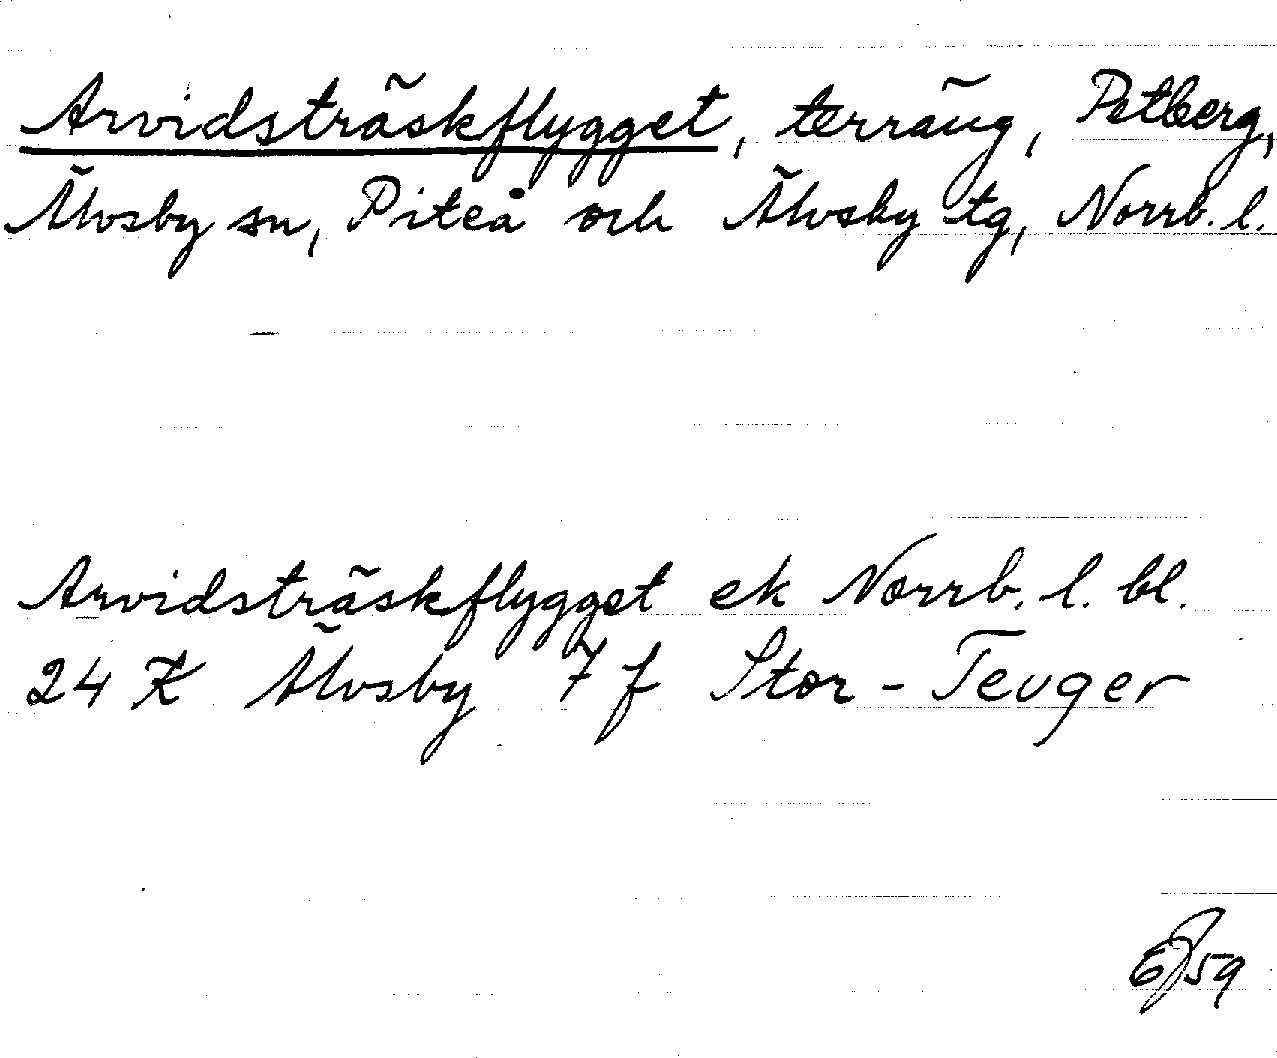 Arvidsträskflygget, terräng, Petberg,
Älvsby sn, Piteå och Älvsby tg, Norrb. l.
Arvidsträskflygget ek Norrb. l. bl.
24 K Älvsby 7 f Stor-Teuger
EJ 59